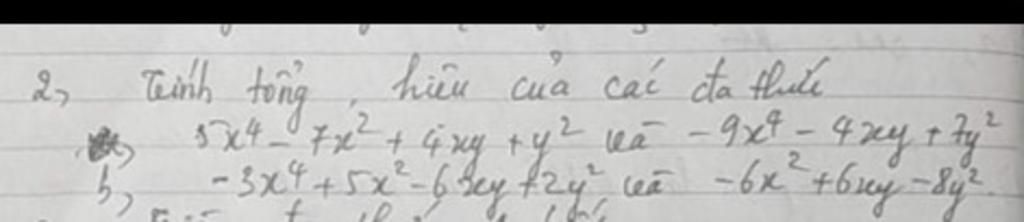 2, Tính tổng, hiệu của các đa thức
a, 5x⁴ - 7x² + 4xy + y² và -9x⁴ - 4xy + 7y²
b, -3x⁴ + 5x² - 6xy + 2y² và -6x² + 6xy - 8y².